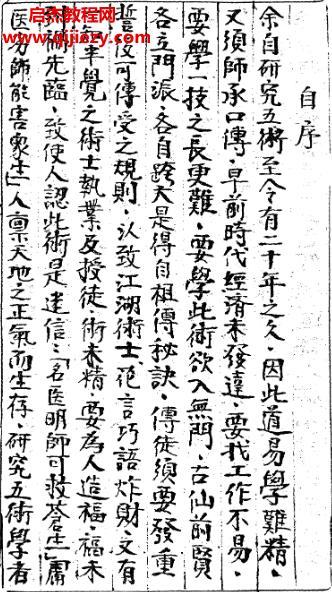 启杰教程网
自序
余自研究五術至今有二十年之久，因此道易學難精，
又須師承口傳，早前時代經濟未發達，要找工作不易，
要學一技之長更難，要學此術欲入無門，古仙前賢
各立門派，各自跨大是得自祖傳秘訣，傳徒須要發重
誓反可傳受之規則，以致江湖術士、言巧語炸財，又有
半覺之術士執業及授徒，術未精，要為人造福，福未
禍先臨，致使人認此術是迷信，「名医明師可救蒼生」庸
医師能害衆生」人禀天地之正氣而生存，研究五術學者